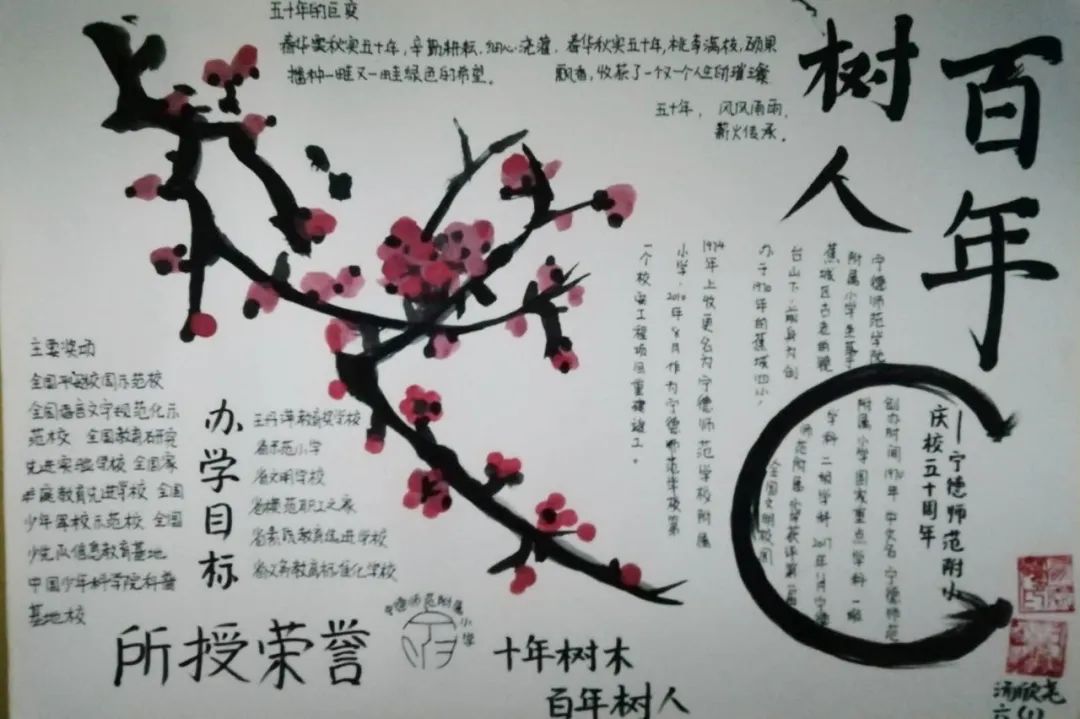 百年
树人
五十年的巨变
春华秋实五十年,辛勤耕耘,细心浇灌,
播种一畦又一畦绿色的希望。
春华秋实五十年,桃李满枝,硕果
飘香,收获了一个又一个人生的璀璨
五十年, 风风雨雨,
薪火传承。
宁德师范学院
附属小学坐落于
蕉城区古色的镜
台山下,前身为创
办于1970年的蕉城四小,
1974年上收更名为宁德师范学校附属
小学,2010年8月作为宁德师范学校第
一个校安工程项目重建竣工。
——宁德师范附小
庆校五十周年
创办时间1970年 中文名 宁德师范
附属小学国家重点学科一级
学科 二级学科 2017年11月宁德
师范附属小学获评第一届
全国文明校园
主要奖项
全国平安校园示范校
全国语言文字规范化示
范校 全国教育研究
先进实验学校 全国家
庭教育先进学校 全国
少年军校示范校 全国
少先队信息教育基地
中国少年科学院科普
基地校
办学目标
王丹萍教育奖学校
省示范小学
省文明学校
省模范职工之家
省素质教育先进学校
省义务教育标准化学校
所授荣誉
宁德师范附属小学
十年树木
百年树人
六(1)